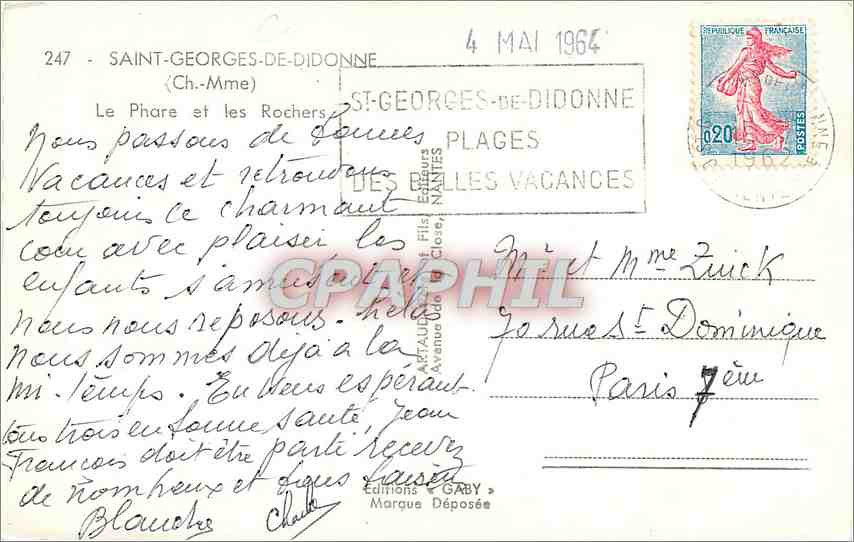 247 - SAINT-GEORGES-DE-DIDONNE
(Ch.-Mme)
Le Phare et les Rochers
4 MAI 1964
ST-GEORGES-DE-DIDONNE
PLAGES
DES BELLES VACANCES
REPUBLIQUE FRANÇAISE
0,20
POSTES
1962
Nous passons de bonnes
Vacances et retrouvons
toujours ce charmant
coin avec plaisir les
enfants s'amusent et
nous nous reposons. hélas
nous sommes déjà à la
mi-temps. En vous espérant
tous trois en bonne santé, Jean
François doit être parti recevez
de nombreux et bons baisers
Blanche Charles
ARTAUD et Fils, Editeurs
Avenue de la Close, NANTES
Editions « GABY »
Marque Déposée
CPAPHIL
Mr et Mme Zuick
70 rue St Dominique
Paris 7èm